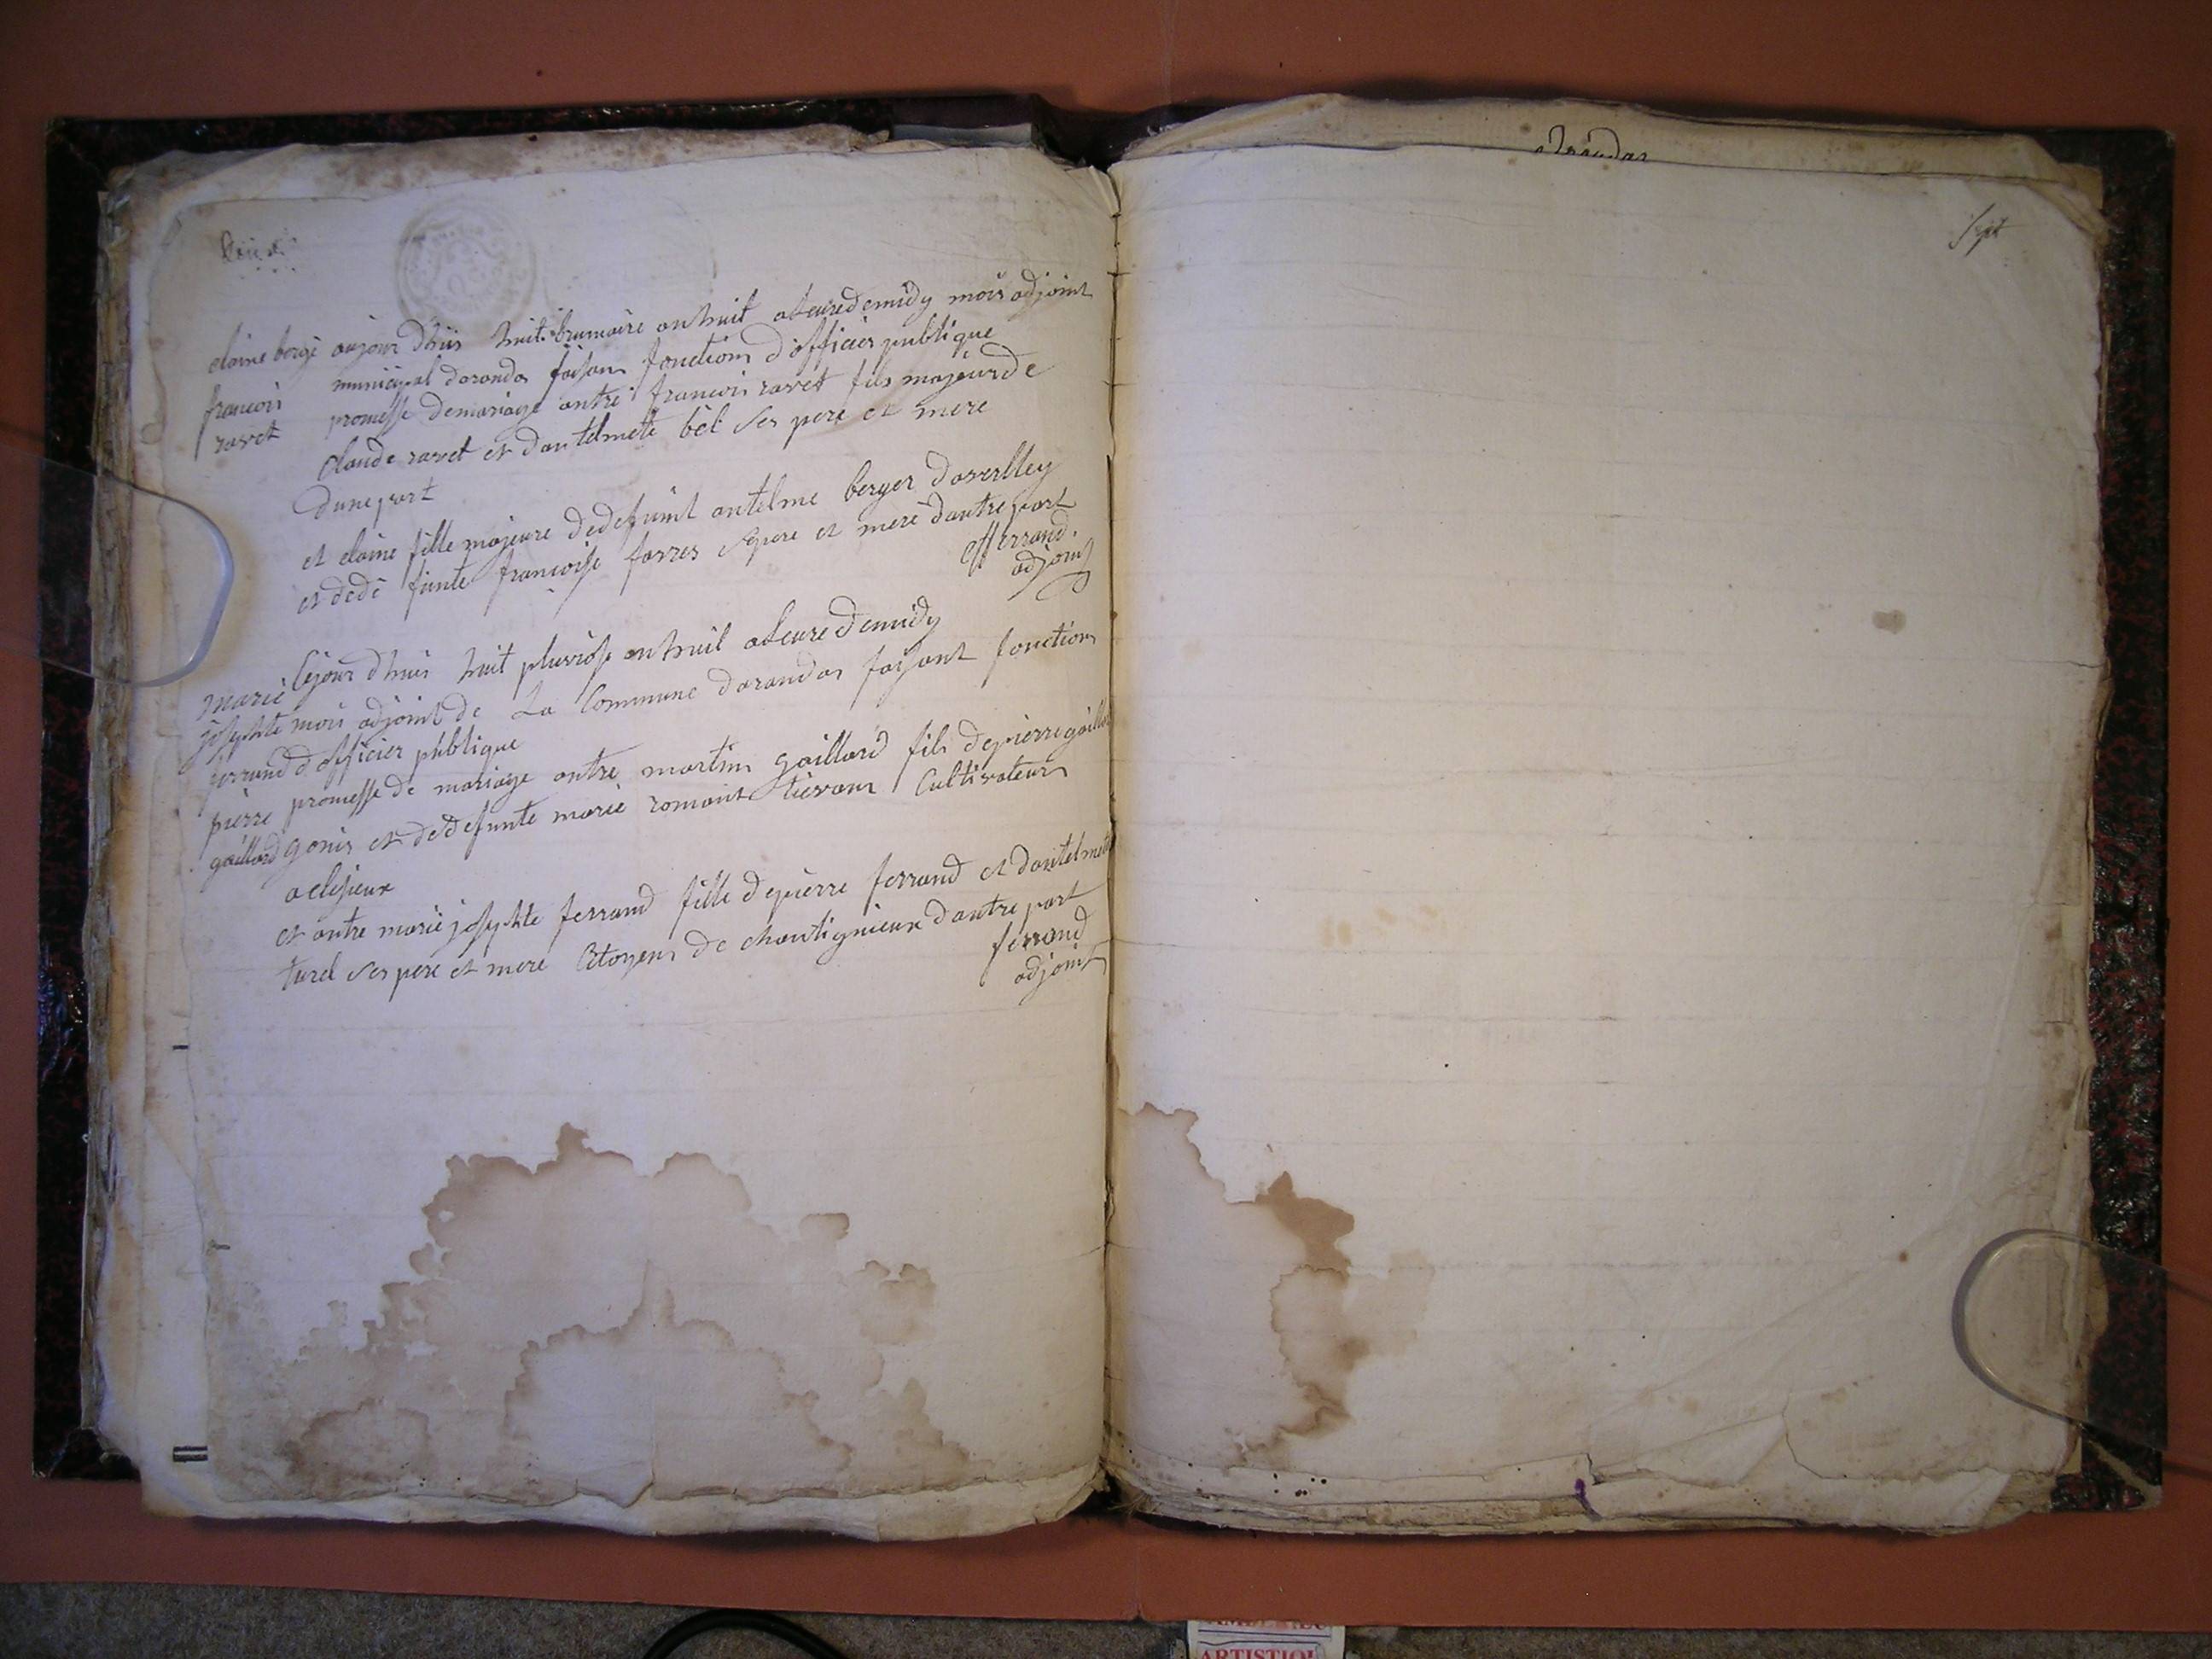 claine berge aujour dhuis huit brumaire an huit a leure de midy mois adjoint
francois municipal darandas faisan fonctions d officier publique
ravet promesse de mariage antre francois ravet fils majeur de
Claude ravet et dantelmete bel ses pere et mere
dune part
et claine fille majeure de defunt antelme berger davrilley
et de de funte francoise farres se pere et mere dautre part
fferrand
adjoint
Cejour dhuis huit pluviose an huit a leure de midy
marie
josephte mois adjoint de La Commune darandas faisant fonctions
ferrand d officier publique
pierre promesse de mariage antre martin gaillard fils de pierre
gaillard gonis et de defunte marie romant Cultivateurs
a clesieux
et antre marie josephte ferrand fille de pierre ferrand et dantelmete
turel ses pere et mere Citoyens de chantignieux dautre part
ferrand
adjoint
Sept
ARTISTIQU